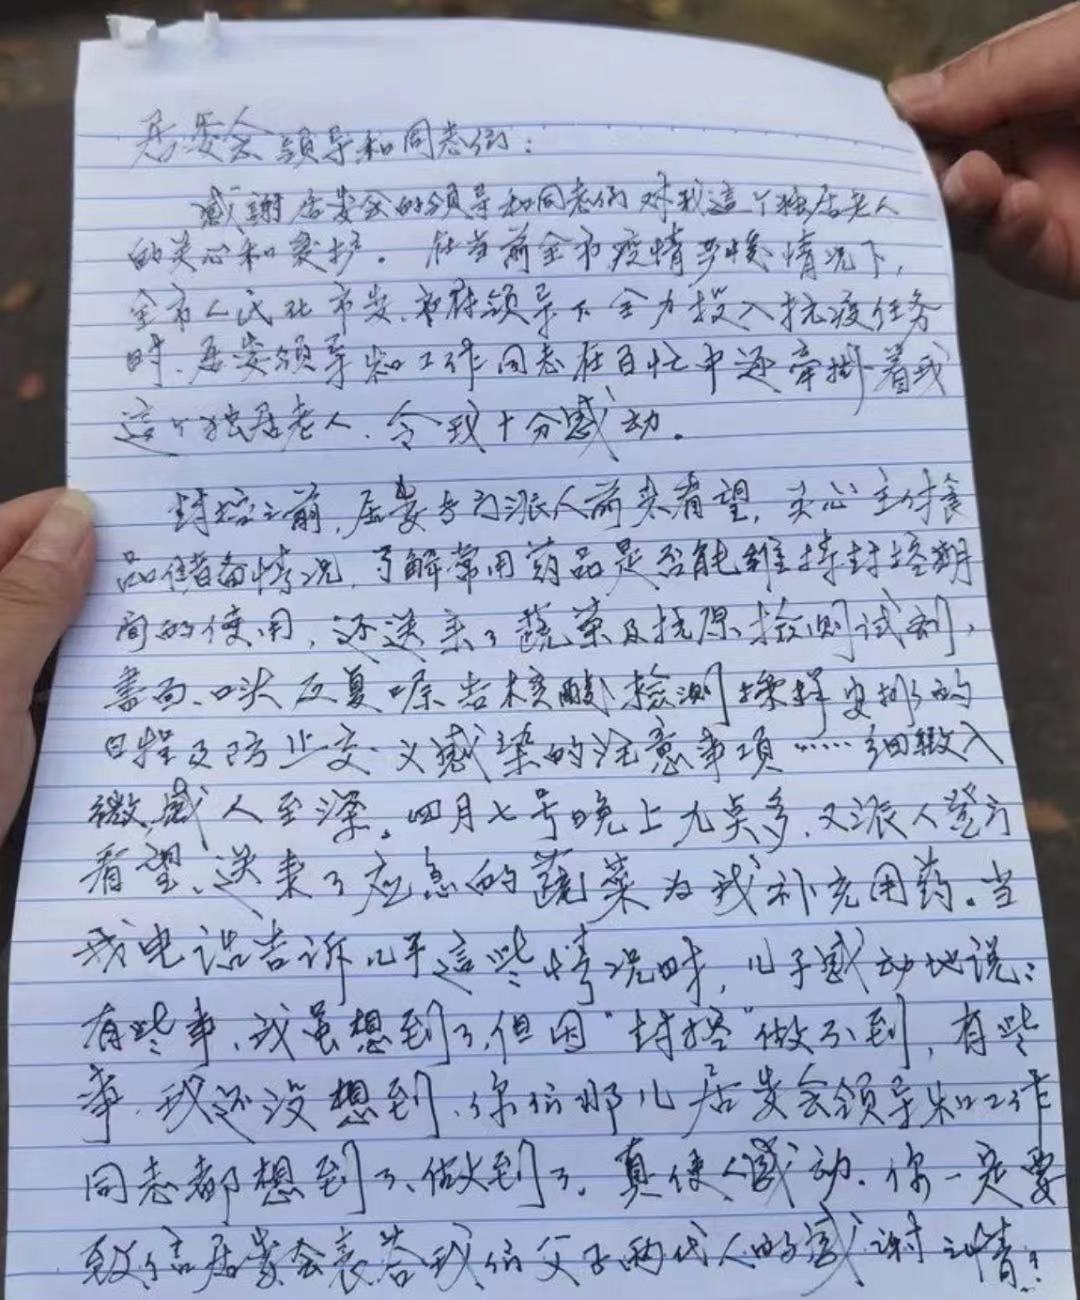 居委会领导和同志们：
感谢居委会的领导和同志们对我这个独居老人
的关心和爱护。在当前全市疫情严峻情况下，
全市人民在市委、市府领导下全力投入抗疫任务
时、居委领导和工作同志在百忙中还牵掛着我
這个独居老人、令我十分感动。
封控之前，居委专门派人前来看望，关心主付食
品储备情况，了解常用药品是否能维持封控期
间的使用，还送来了蔬菜及抗原检测试剂，
書面、口头反复嘱告核酸检测採样安排的
日程及防止交义感染的注意事项……细致入
微，感人至深。四月七号晚上九点多，又派人登门
看望、送来了应急的蔬菜为我补充用药。当
我电话告诉儿子這些情况时，儿子感动地说：
有些事、我虽想到了，但因“封控”做不到，有些
事、我还没想到、你们那儿居委会领导和工作
同志都想到了、做到了。真使人感动。你一定要
致信居委会表答我们父子两代人的感谢之情！